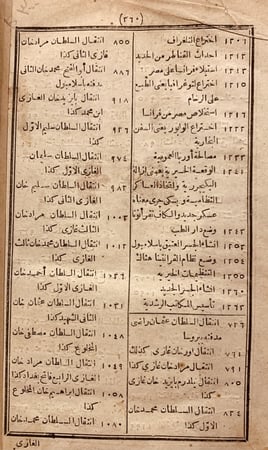 (٢٦٠)
١٢٠٦ اختراع التلغراف
١٢١٢ احداث القناطر من الحديد
١٢١٣ استيلاء فرانسا على مصر
١٢١٣ اختراع ليتوغرافيا يعنى الطبع
على الرخام
استخلاص مصر من فرانسا
اختراع الوابور يعنى السفن
البخارية
١٢٣٣
١٢٤١ الوقعة الخيرية يعنى ازالة
اليكيجرية واتخاذ العساكر
النظامية
عسكر جديد
١٢٤٣ وضع دار الطب
١٢٥٣ انشاء الجسر العتيق باسلامبول
١٢٥٠ وضع نظام القرانتينا هنالك
١٢٥٥ التنظيمات الخيريه
١٢٦٠ انشاء الجسر الجديد
١٢٦٣ تأسيس المكاتب الرشدية
٧٢٦ انتقال السلطان عثمان
مدفنه بروسا
انتقال اورخان غازى كذلك
٧٩١ انتقال مراد خان غازى كذا
٨٠٥ انتقال يلدرم بايزيد خان غازى
كذا
٨٢٤ انتقال السلطان محمد خان
كذا
٨٥٥ انتقال السلطان مراد خان
غازى الثانى كذا
٨٨٦ انتقال ابو الفتح محمد خان الثانى
مدفنه باسلامبول
٩١٨ انتقال بايزيد خان الغازى
ابن محمد كذا
٩٢٦ انتقال السلطان سليم الاول
كذا
٩٧٤ انتقال السلطان سليمان
الغازى الاول كذا
٩٨٢ انتقال السلطان سليم خان
الغازى الثانى كذا
١٠٠٣ انتقال السلطان مراد خان
الثالث غازى كذا
١٠١٢ انتقال السلطان محمد خان ثالث
الغازى كذا
١٠٢٦ انتقال السلطان احمد خان
الغازى الاول كذا
١٠٣١ انتقال السلطان عثمان خان
الثانى الشهيد كذا
١٠٤٨ انتقال السلطان مصطفى خان
المخلوع كذا
١٠٤٩ انتقال السلطان مراد خان
الغازى الرابع فاتح بغداد كذا
١٠٥٨ انتقال ابراهيم خان المخلوع
كذا
انتقال السلطان محمد خان
الغازى